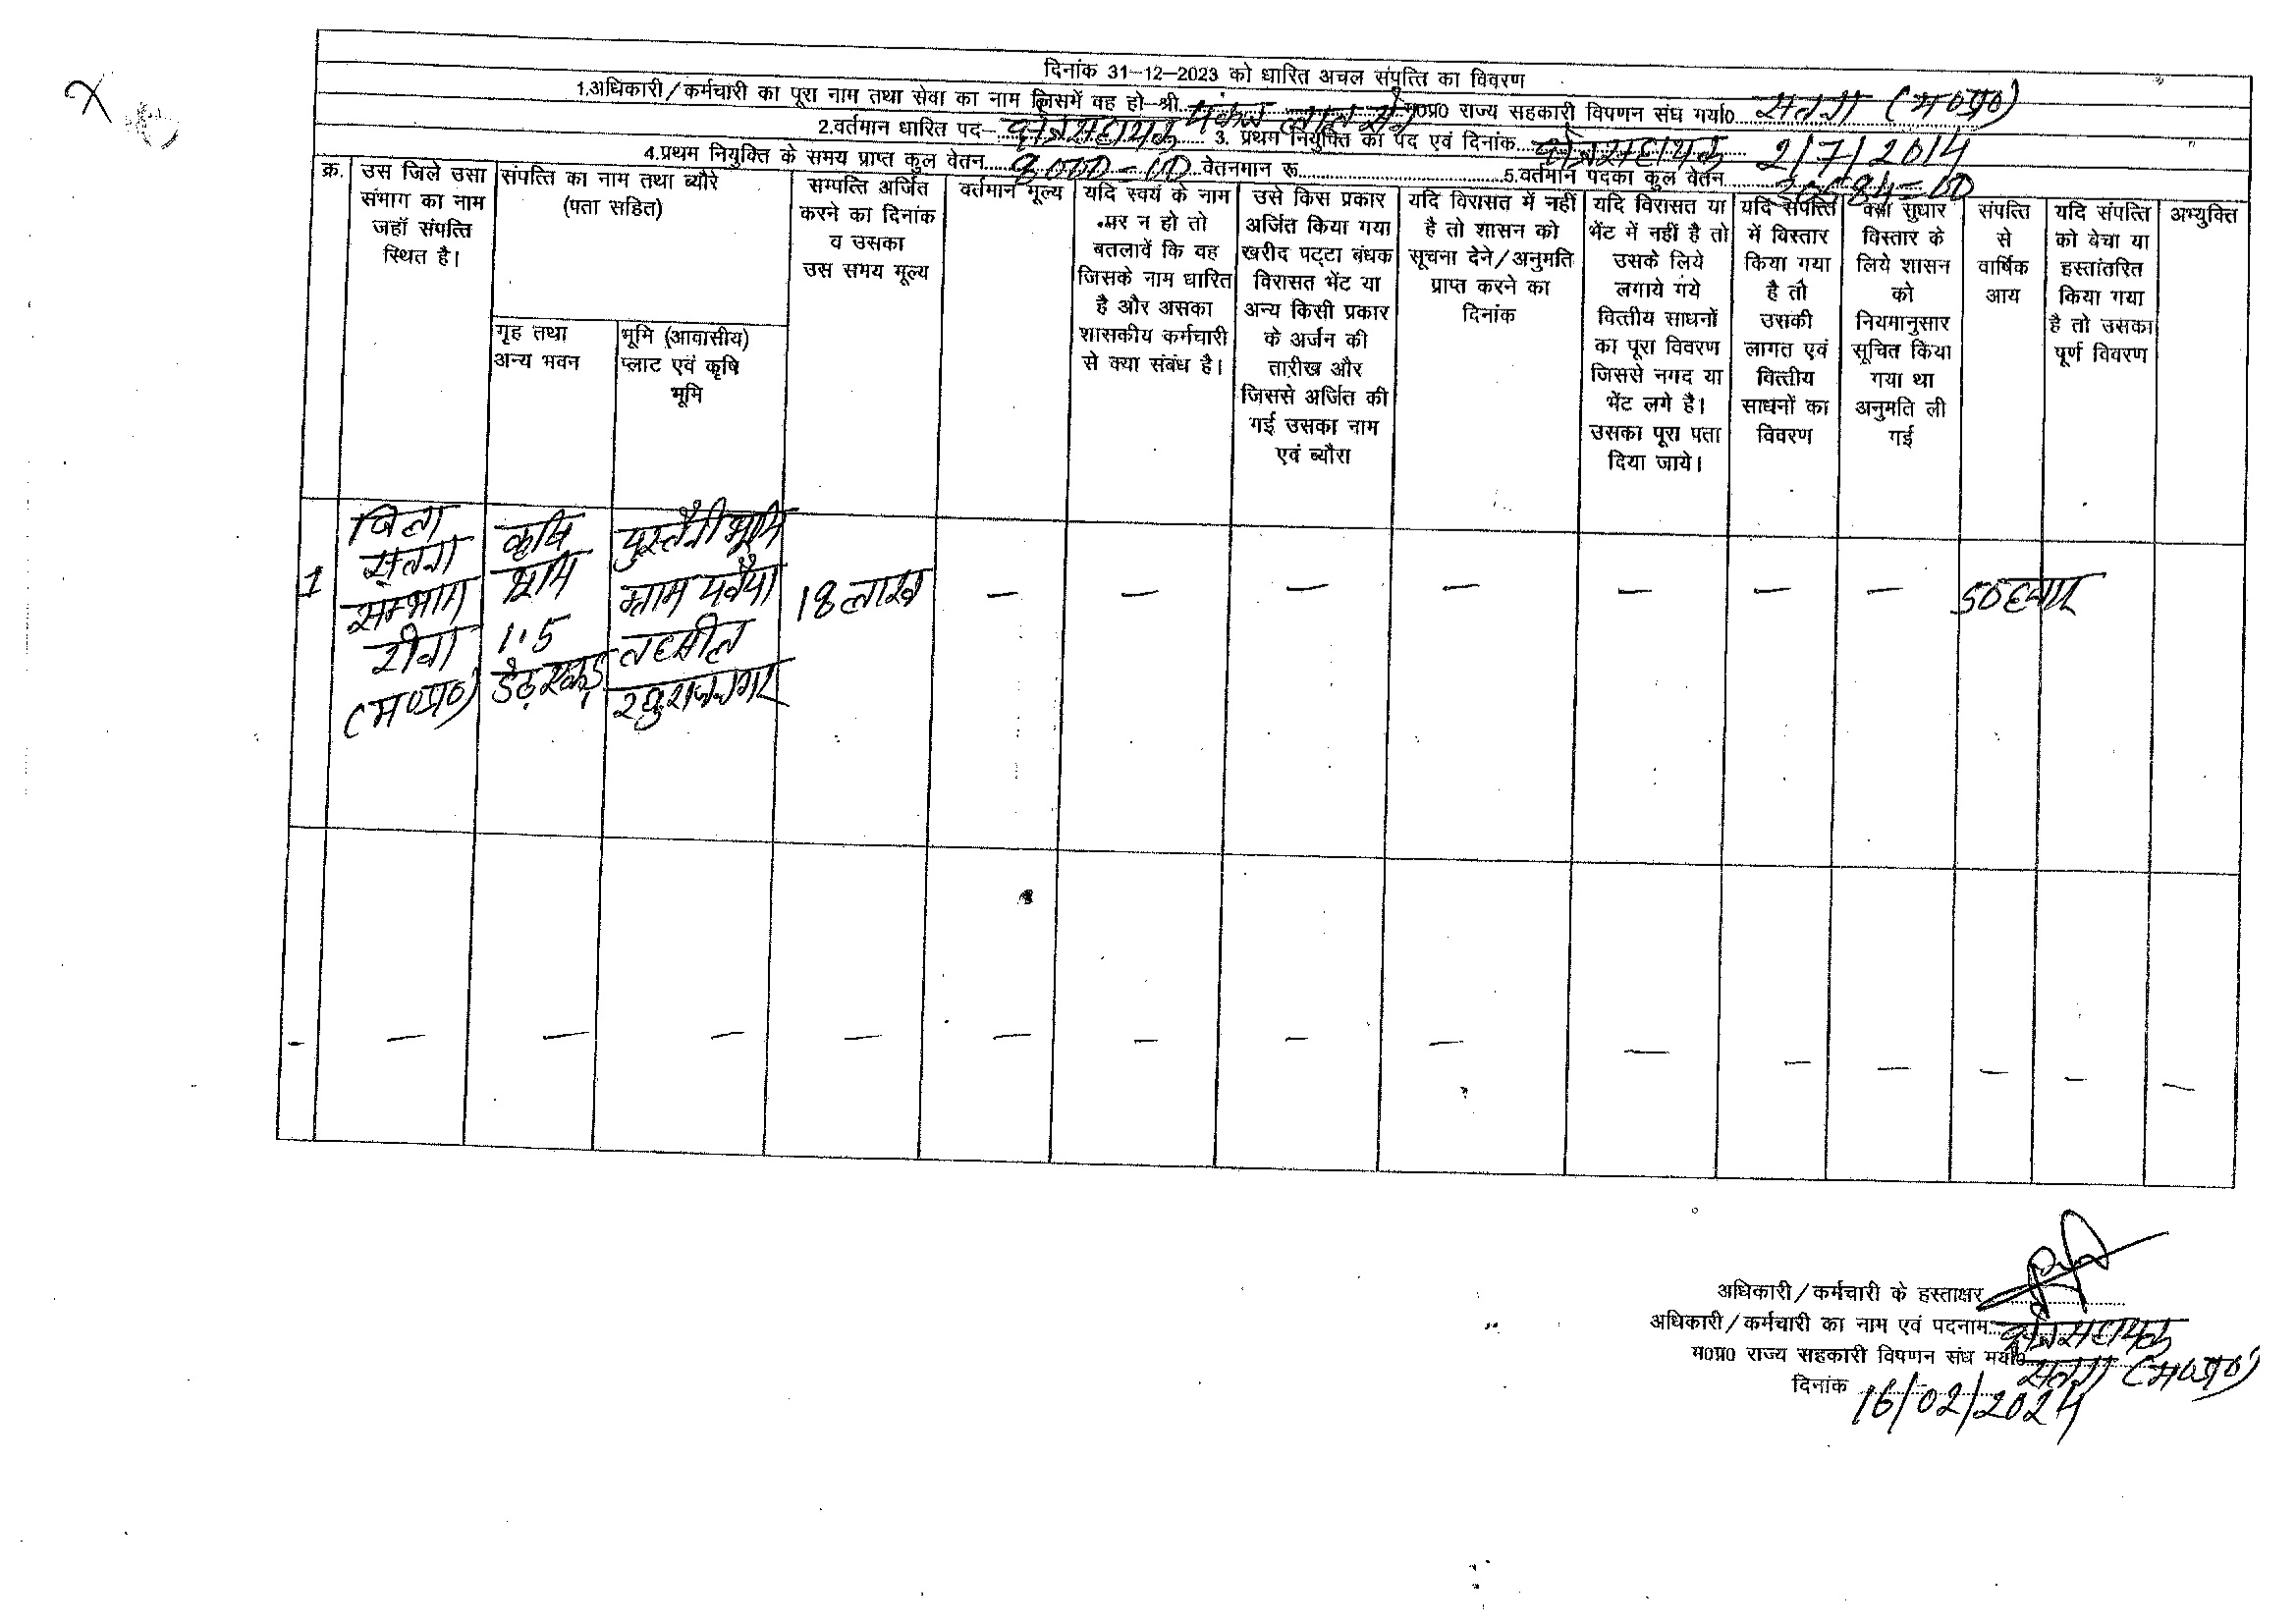 दिनांक 31-12-2023 को धारित अचल संपत्ति का विवरण
1.अधिकारी/कर्मचारी का पूरा नाम तथा सेवा का नाम जिसमें वह हो श्री पंकज लाल सेन म0प्र0 राज्य सहकारी विपणन संघ मर्या0 सतना (म०प्र०)
2.वर्तमान धारित पद क्षेत्रसहायक 3. प्रथम नियुक्ति का पद एवं दिनांक क्षेत्रसहायक 2/7/2014
4.प्रथम नियुक्ति के समय प्राप्त कुल वेतन 9000-00 वेतनमान रू. 5.वर्तमान पदका कुल वेतन
क्र.
उस जिले उसा
संभाग का नाम
जहॉ संपत्ति
स्थित है।
संपत्ति का नाम तथा ब्यौरे
(पता सहित)
गृह तथा
अन्य भवन
भूमि (आवासीय)
प्लाट एवं कृषि
भूमि
सम्पत्ति अर्जित
करने का दिनांक
व उसका
उस समय मूल्य
वर्तमान मूल्य
यदि स्वयं के नाम
पर न हो तो
बतलावें कि वह
जिसके नाम धारित
है और असका
शासकीय कर्मचारी
से क्या संबंध है।
उसे किस प्रकार
अर्जित किया गया
खरीद पट्टा बंधक
विरासत भेंट या
अन्य किसी प्रकार
के अर्जन की
तारीख और
जिससे अर्जित की
गई उसका नाम
एवं ब्यौरा
यदि विरासत में नहीं
है तो शासन को
सूचना देने/अनुमति
प्राप्त करने का
दिनांक
यदि विरासत या
भेंट में नहीं है तो
उसके लिये
लगाये गये
वित्तीय साधनों
का पूरा विवरण
जिससे नगद या
भेंट लगे है।
उसका पूरा पता
दिया जाये।
यदि संपत्ति
में विस्तार
किया गया
है तो
उसकी
लागत एवं
वित्तीय
साधनों का
विवरण
क्या सुधार
विस्तार के
लिये शासन
को
नियमानुसार
सूचित किया
गया था
अनुमति ली
गई
संपत्ति
से
वार्षिक
आय
यदि संपत्ति
को बेचा या
हस्तांतरित
किया गया
है तो उसका
पूर्ण विवरण
अभ्युक्ति
1
जिला
सतना
सम्भाग
रीवा
(म०प्र०)
कृषि
भूमि
1.5
डेढ़ एकड़
पुस्तैनी भूमि
ग्राम
तहसील
रघुराजनगर
18 लाख
— — — — — — —
50 हजार
- — — — — — — — — — — — — — —
अधिकारी/कर्मचारी के हस्ताक्षर
अधिकारी/कर्मचारी का नाम एवं पदनाम क्षेत्रसहायक
म0प्र0 राज्य सहकारी विपणन संघ मर्या0 सतना (म०प्र०)
दिनांक 16/02/2024